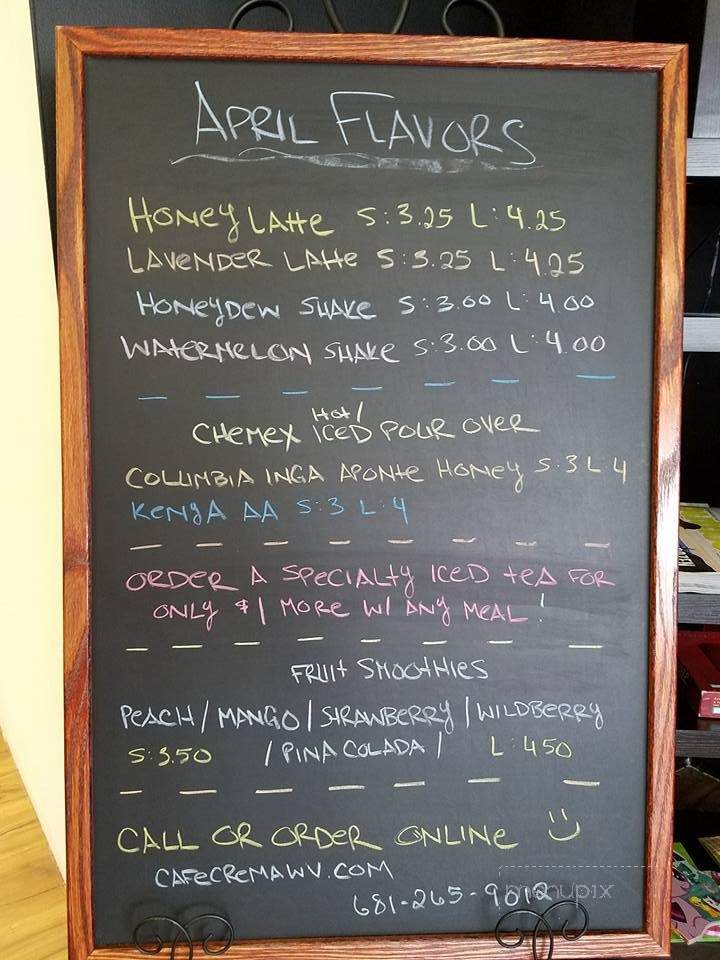 April Flavors
Honey Latte S: 3.25 L: 4.25
Lavender Latte S: 3.25 L: 4.25
Honeydew Shake S: 3.00 L: 4.00
Watermelon Shake S: 3.00 L: 4.00
Hot/
Chemex Iced Pour Over
Columbia Inga Aponte Honey S: 3 L: 4
Kenya AA S: 3 L: 4
Order a specialty iced tea for
only $1 more w/ any meal!
Fruit Smoothies
Peach / Mango / Strawberry / Wildberry
S: 3.50 / Pina Colada / L: 4.50
Call or order online :)
cafecremawv.com
681-265-9012
menupix